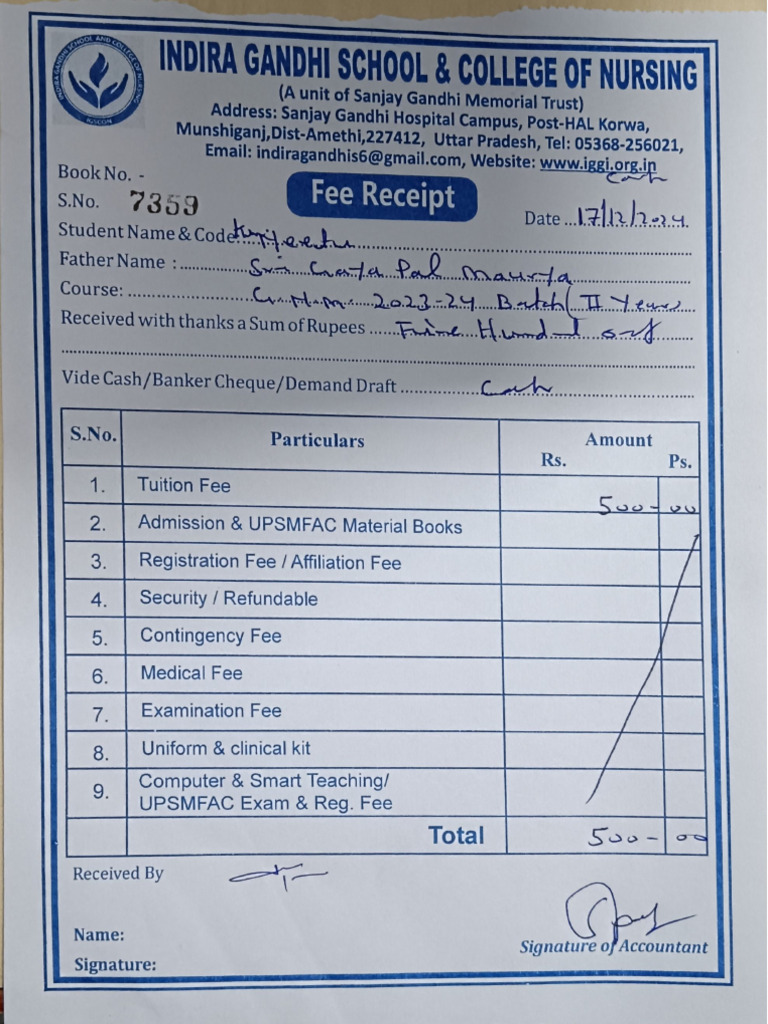 INDIRA GANDHI SCHOOL AND COLLEGE OF NURSING
IGSCON
INDIRA GANDHI SCHOOL & COLLEGE OF NURSING
(A unit of Sanjay Gandhi Memorial Trust)
Address: Sanjay Gandhi Hospital Campus, Post-HAL Korwa,
Munshiganj,Dist-Amethi,227412, Uttar Pradesh, Tel: 05368-256021,
Email: indiragandhis6@gmail.com, Website: www.iggi.org.in
Cash
Book No. -
S.No. 7359
Fee Receipt
Date ...17/12/2024
Student Name & Code:
Father Name : Sri Pal Maurya
Course: G.N.M. 2023-24 Batch (II Year
Received with thanks a Sum of Rupees Five Hundred only
Vide Cash/Banker Cheque/Demand Draft Cash
S.No. Particulars Amount
Rs. Ps.
1. Tuition Fee 500-00
2. Admission & UPSMFAC Material Books
3. Registration Fee / Affiliation Fee
4. Security / Refundable
5. Contingency Fee
6. Medical Fee
7. Examination Fee
8. Uniform & clinical kit
9. Computer & Smart Teaching/
UPSMFAC Exam & Reg. Fee
Total 500-00
Received By
Name:
Signature of Accountant
Signature: